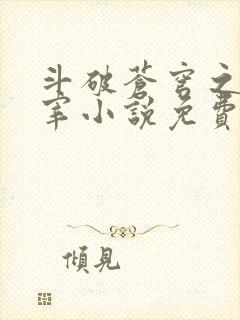 斗破蒼穹之
宰小說免費
傾見